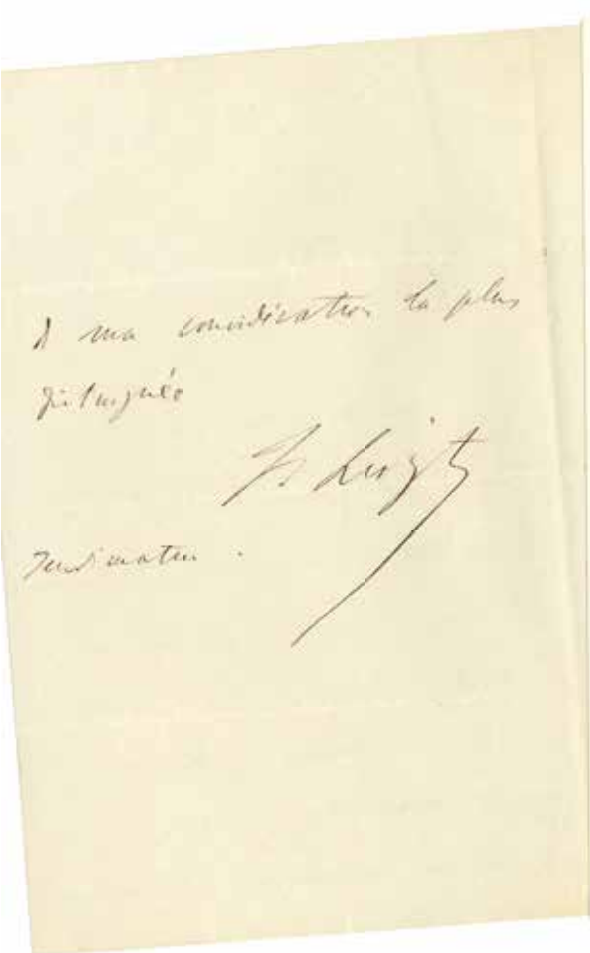 ma considération la plus
distinguée
F. Liszt
Jeudi matin.